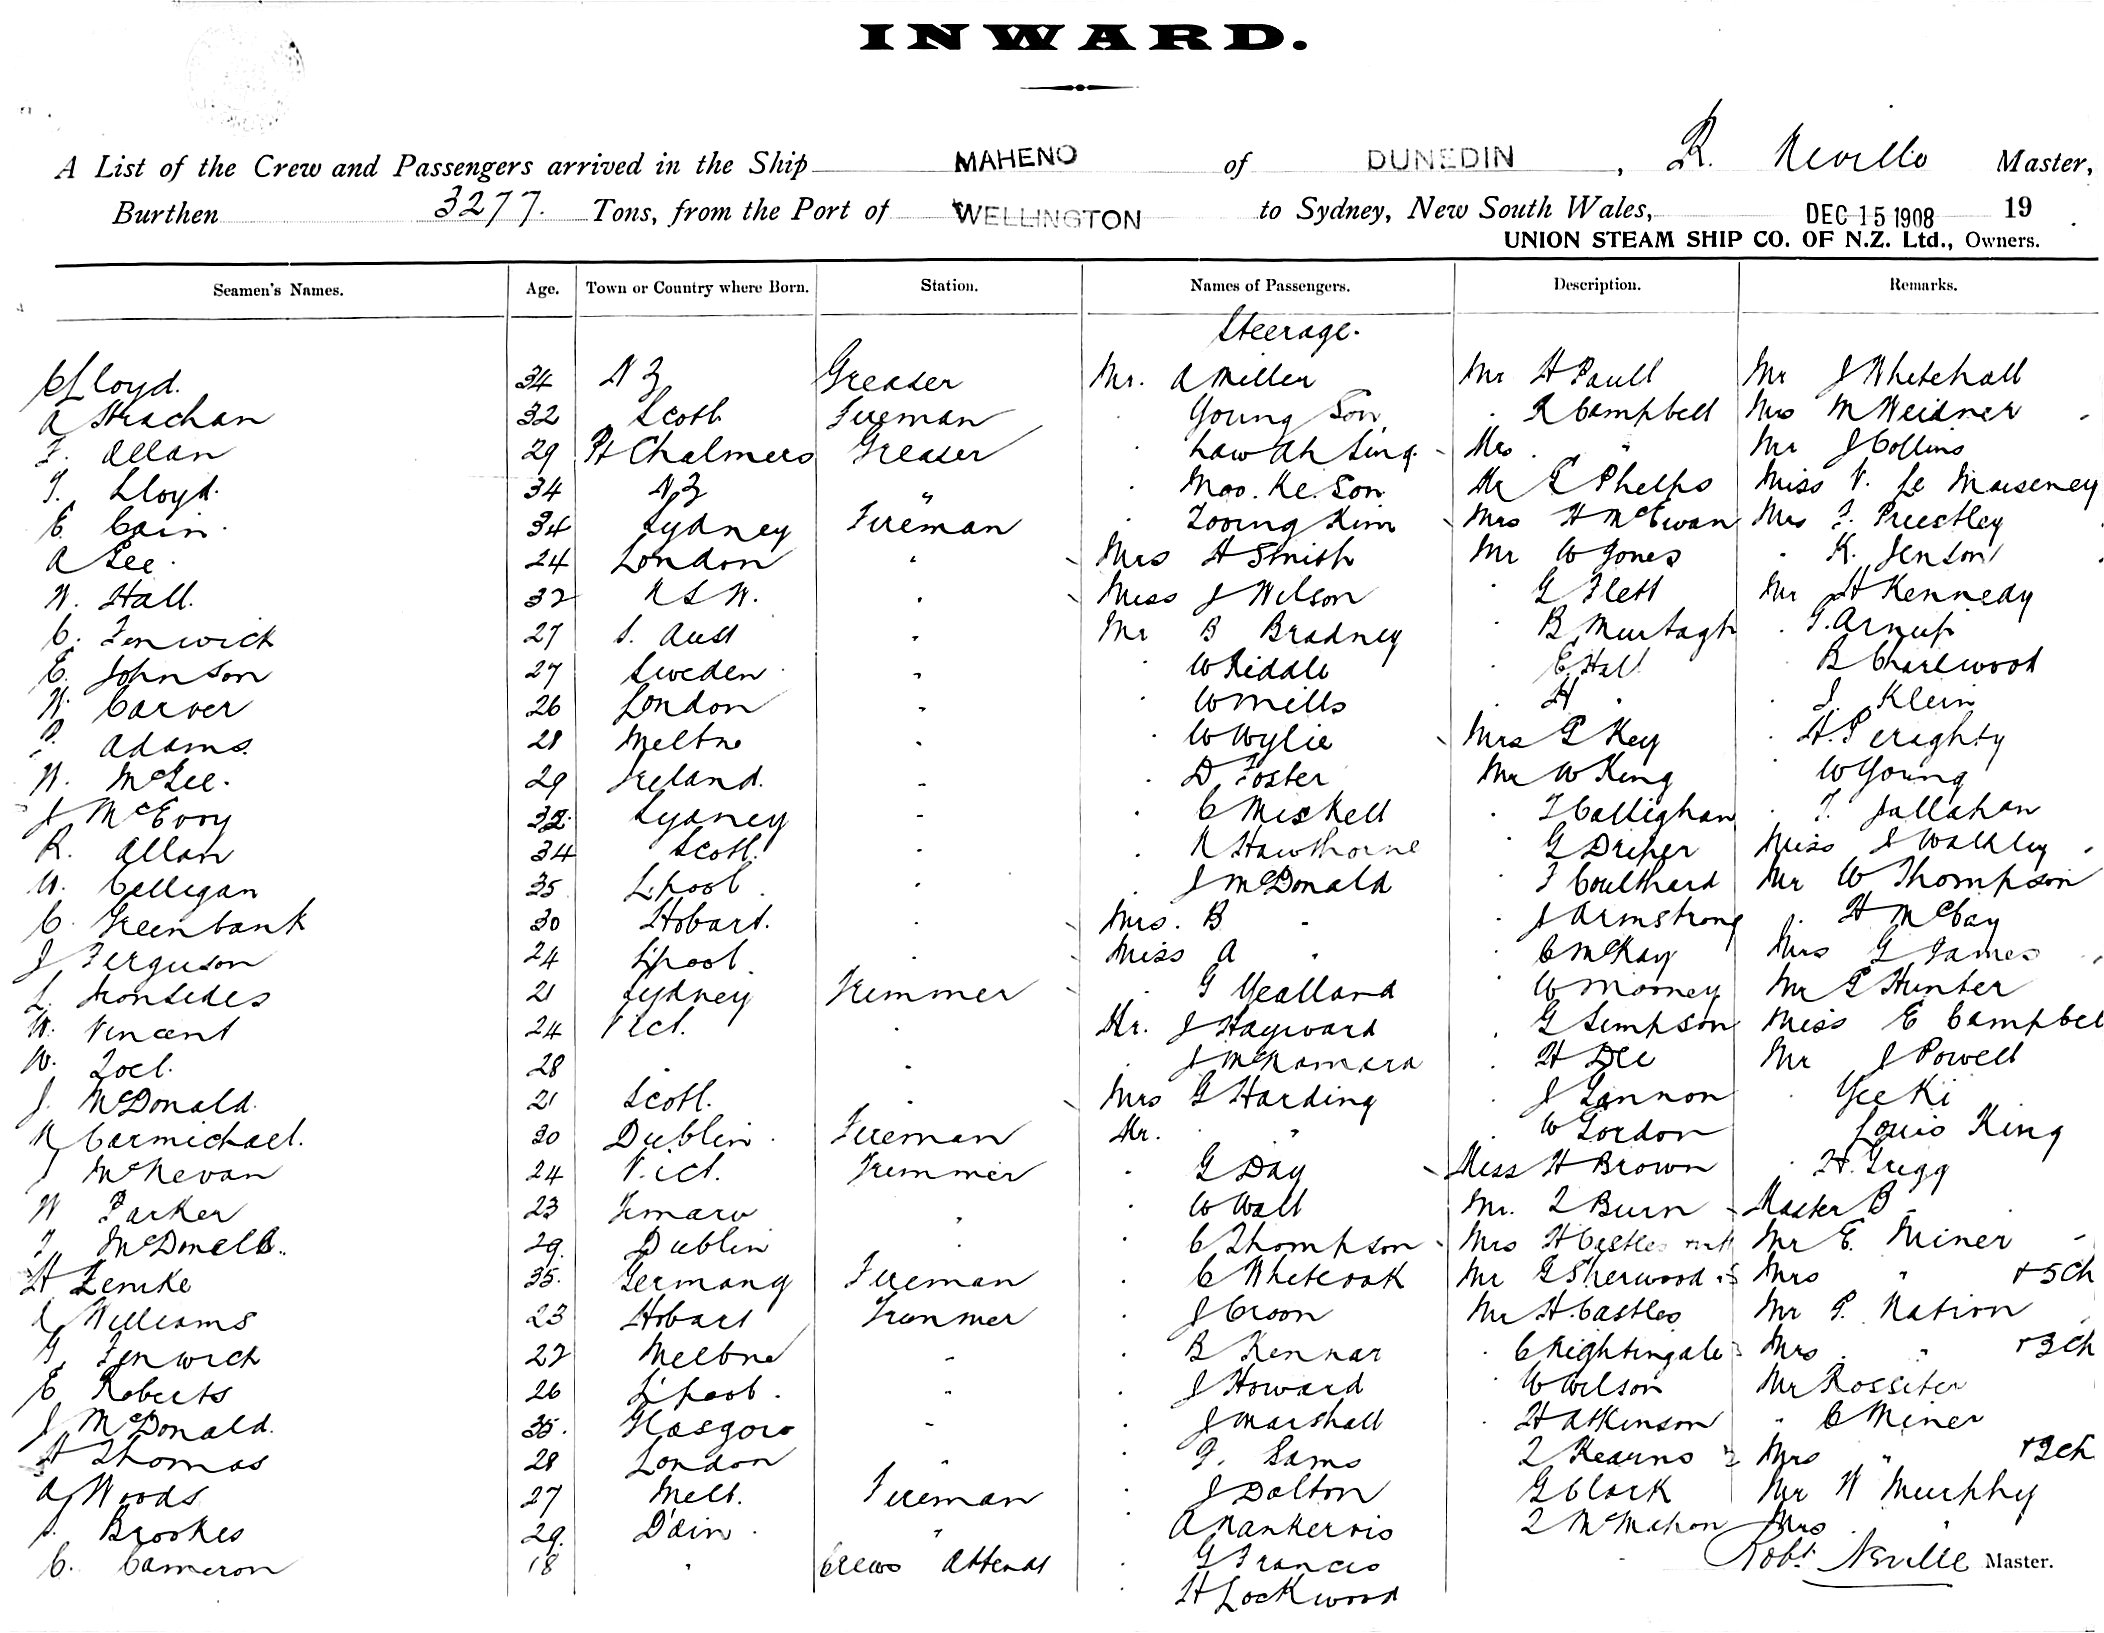 INWARD.
A List of the Crew and Passengers arrived in the Ship MAHENO of DUNEDIN, R. Neville Master,
Burthen 3277. Tons, from the Port of WELLINGTON to Sydney, New South Wales, DEC 15 1908 19
UNION STEAM SHIP CO. OF N.Z. Ltd., Owners.
Seamen's Names. Age. Town or Country where Born. Station. Names of Passengers. Description. Remarks.
Steerage.
C Lloyd. 34 N Z Greaser Mr. A Miller Mr H Paull Mr J Whitehall
A Strachan 32 Scotl Fireman Young Son R Campbell Mrs M Weidner
F. Allan 29 Pt Chalmers Greaser Law Ah Sing Mrs " Mr J Collins
T. Lloyd. 34 N Z " Moo. Ke. Son Mr E Phelps Miss V. Le Maiseney
E. Cain. 34 Sydney Fireman Kim Mrs H McEwan Mrs F. Priestley
A Lee. 24 London " Mrs H Smith Mr W Jones " K. Jenson
W. Hall. 32 N S W. " Miss J Wilson " G Flett Mr H Kennedy
C. Fenwick 27 S. Aust " Mr B Bradney " B Murtagh " T. Arnup
E. Johnson 27 Sweden " " W Riddle " E Hall B Charlwood
W. Carver 26 London " " W Mills " H " " J. Klein
P. Adams. 28 Melbne " " W Wylie Mrs E Key " H. Peraghty
W. McGee. 29 Ireland. " " D Foster Mr W King " W Young
J McEvoy 32 Sydney " " C Miskell " T Callighan " T. Jallahan
R. Allan 34 Scotl. " " R Hawthorne G Driper Miss J Walkley
W. Colligan 35 L'pool. " " J McDonald " F Coulthard Mr W Thompson
C. Greenbank 30 Hobart. " Mrs. B " " J Armstrong " H McCay
J Ferguson 24 L'pool. " Miss A " " C McKay Mrs G James
L. Ironsides 21 Sydney Trimmer " G Yealland W Morney Mr P Hunter
W. Vincent 24 Vict. " Mr. J Hayward " G Simpson Miss E Campbel
W. 28 " " " J McNamara " H Dee Mr J Powell
J. McDonald. 21 Scotl. " Mrs G Harding " J Lannon " Yee Ki
N Carmichael. 30 Dublin. Fireman Mr. " " W Gordon Louis King
J McKevan 24 Vict. Trimmer " G Day Miss H Brown " H. Gregg
W Parker 23 Timaru " " W Wall Mr. T Burn Master B
T. McDonell. 29. Dublin " " C Thompson Mrs H Castles Mr E. Miner
H Lemke 35. Germany Fireman " C Whitcoak Mr G Sherwood Mrs " + 5 Ch
Williams 23 Hobart Trimmer " J Croon Mr H. Castles Mr P. Nation
G. Fenwick 22 Melbne " " B Kennar " C Nightingale Mrs " + 3 Ch
E Roberts 26 L'pool. " " J Howard W Wilson Mr Rossiter
J McDonald. 35. Glasgow " " J Marshall " H Atkinson " C Miner
H Thomas 28 London " " F. Sams T Kearns Mrs " + 2 Ch
A Woods 27 Melb. Fireman " J Dalton G Clark Mr W Murphy
Brookes 29. D'din. " A Nankervis T McMahon Mrs "
C. Cameron 18 " Crews Attend " G Francis Robt. Neville Master.
" H Lockwood